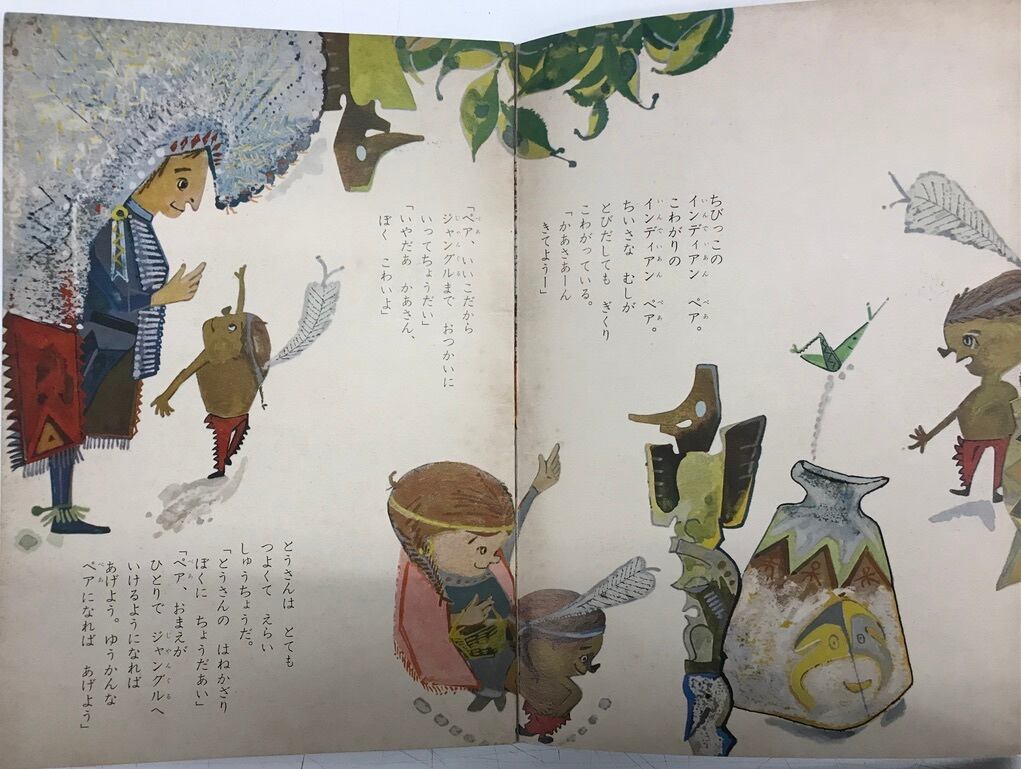 ちびっこの
インディアン　ペア。
こわがりの
インディアン　ペア。
ちいさな　むしが
とびだしても　ぎくり
こわがっている。
「かあさあーん
きてようー」
「ペア、いいこだから
ジャングルまで　おつかいに
いってちょうだい」
「いやだあ　かあさん、
ぼく　こわいよ」
とうさんは　とても
つよくて　えらい
しゅうちょうだ。
「とうさんの　はねかざり
ぼくに　ちょうだあい」
「ペア、おまえが
ひとりで　ジャングルへ
いけるようになれば
あげよう。ゆうかんな
ペアになれば　あげよう」